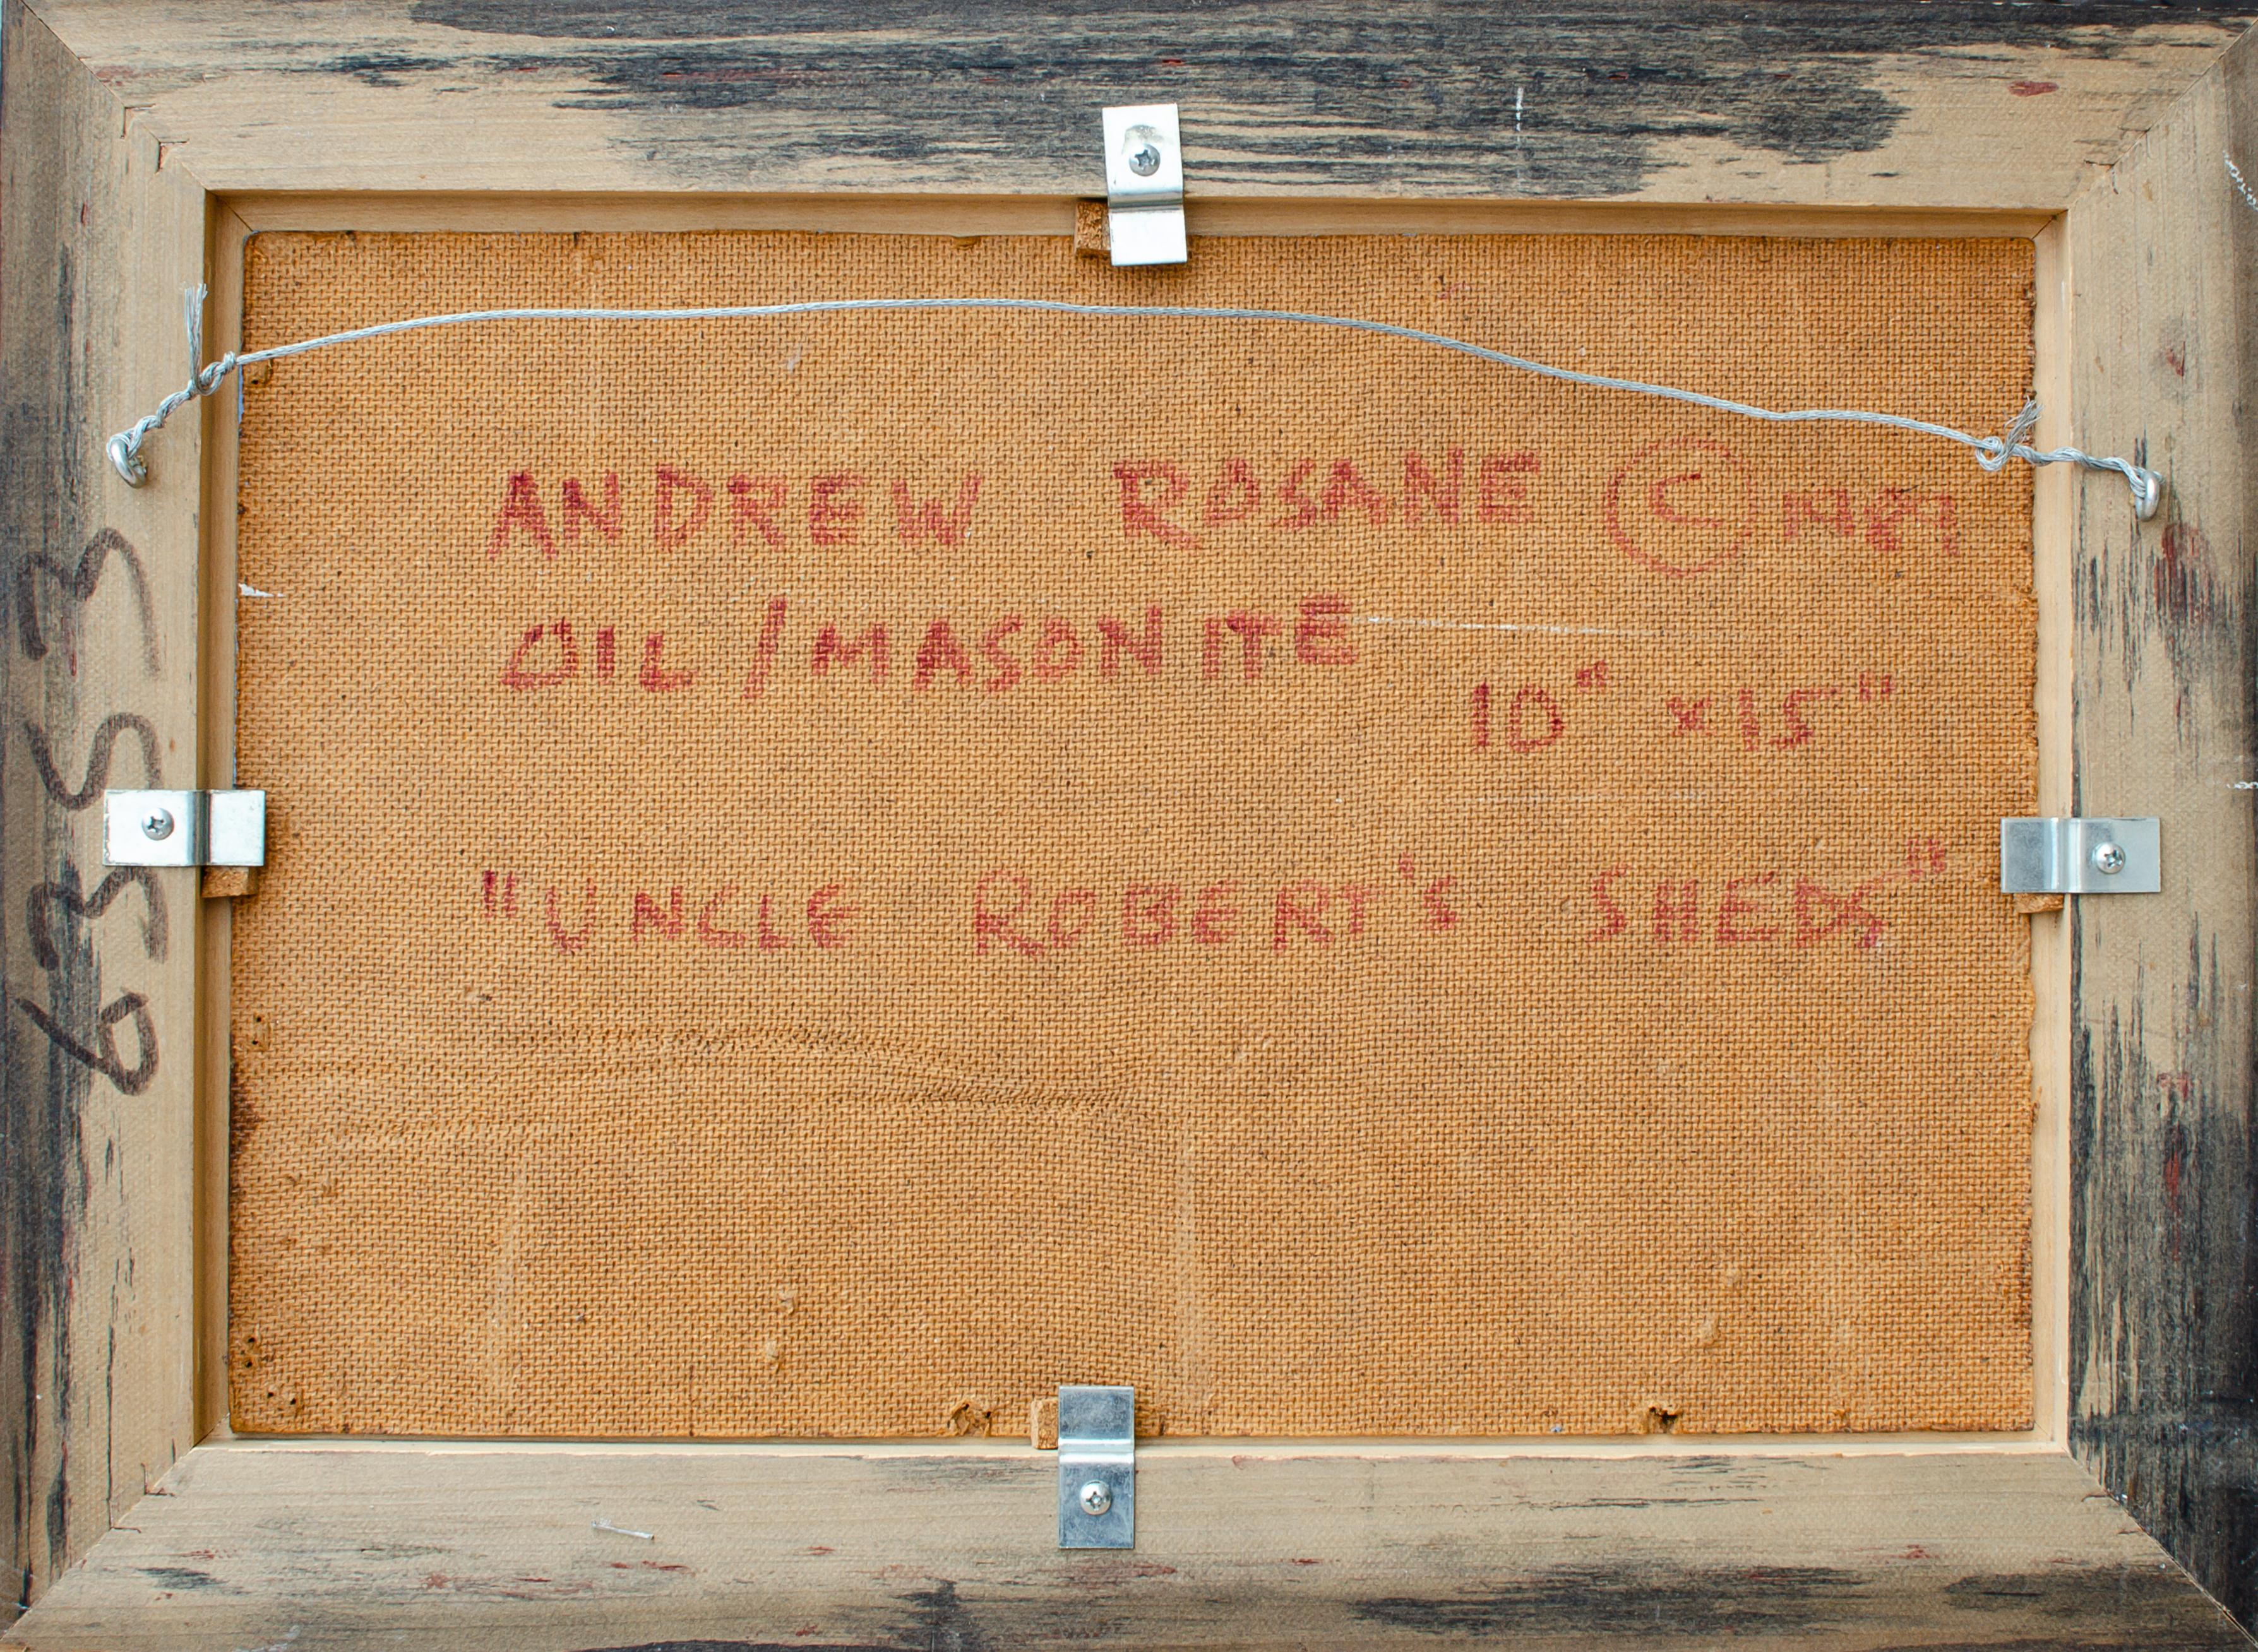 ANDREW ROSANE © 1987
OIL/MASONITE
10" x 15"
"UNCLE ROBERT'S SHEDS"
6353